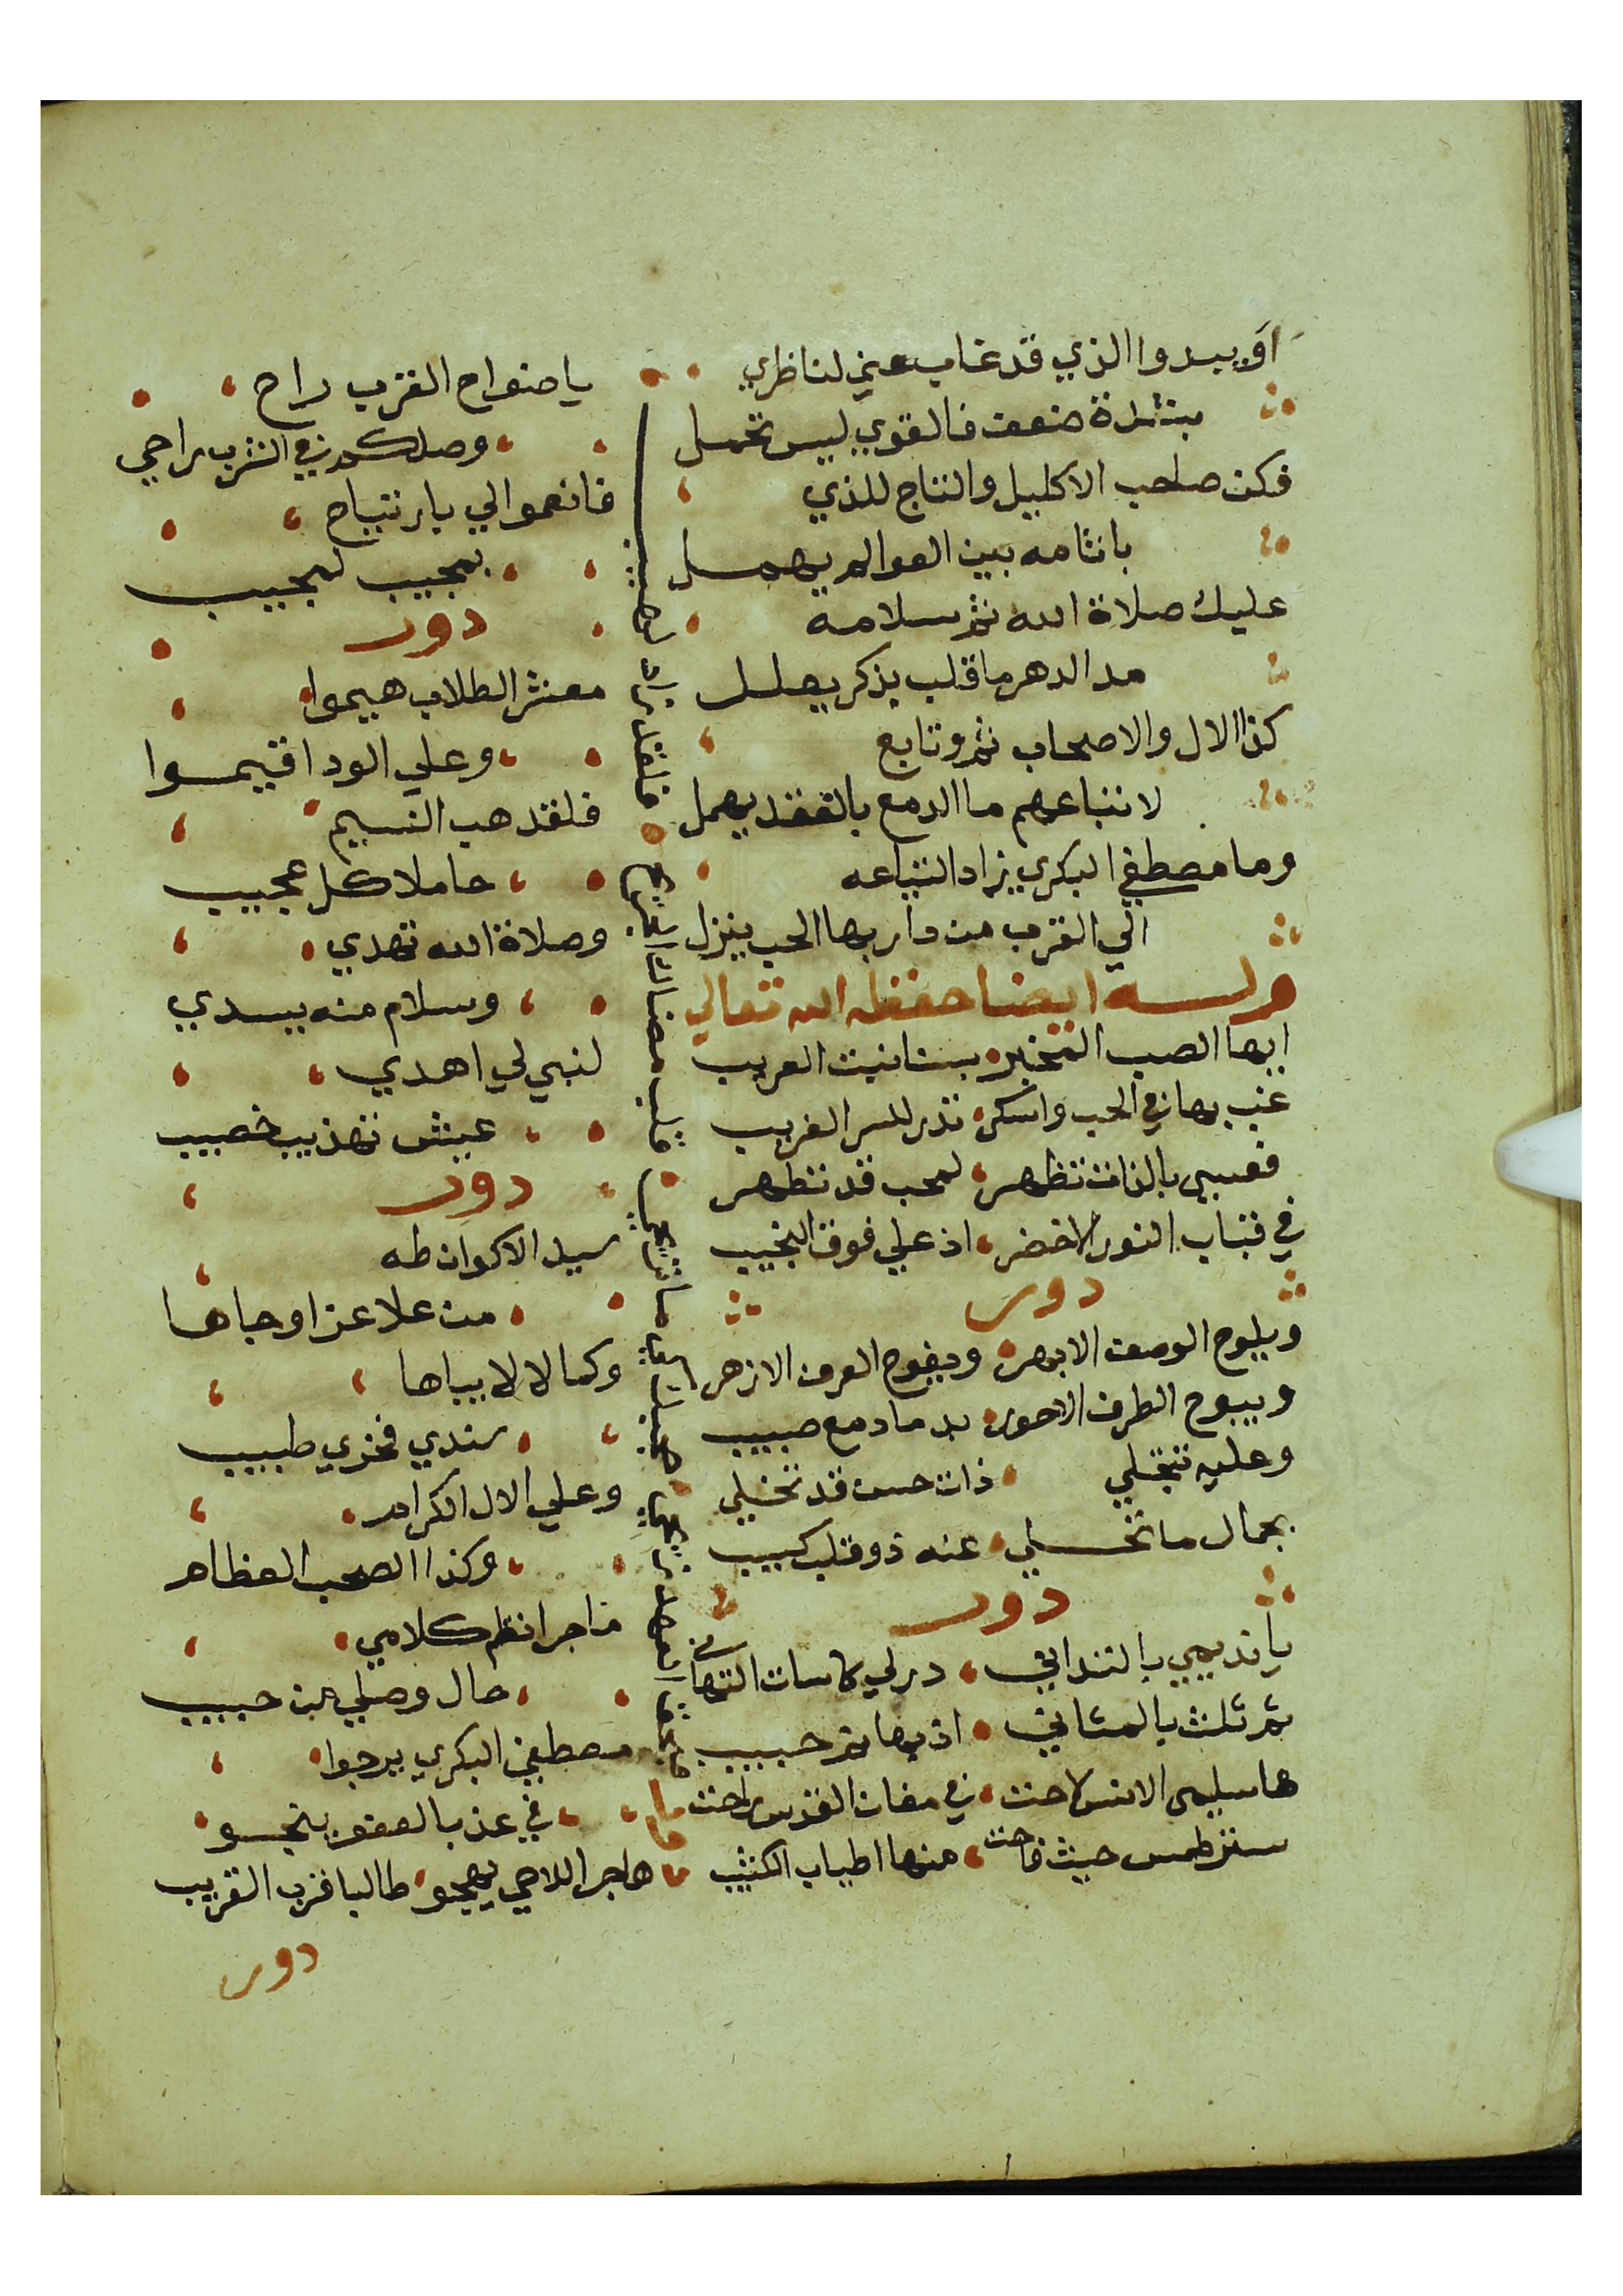 او يبدوا الذي قد غاب عني لناظري
بشدة ضعف فالقوي ليس تحمل
فكن صاحب الاكليل والتاج للذي
باثامه بين العوالم يهمل
عليك صلاة الله ثم سلامه
مدا الدهر ما قلب بذكر يعلل
كذا الال والاصحاب ثم وتابع
لاتباعهم ما الدمع بالفقد يهمل
وما مصطفي البكري زاد التياعه
الي القرب من دار بها الحب ينزل
وله ايضا حفظه الله تعالي
ايها الصب المخبر بستانيت العريب
غب بها في الحب واسكر تدر للسر الغريب
فعسي بالذات تظهر لمحب قد تطهر
في قباب النور الاخضر اذ علي فوق النجيب
دور
ويلوح الوصف الابهر ويفوح العرف الازهر
ويبوح الطرف الاحور بدما دمع صبيب
وعليه تنجلي ذات حسن قد تخلي
بجمال ما تخلي عنه ذو قلب كئيب
دور
يا نديمي بالتداني در لي كاسات التهاني
ثم ثلث بالمثاني اذ بها تم حبيب
ها سليمي الانس لاحت في مغان القدس راحت
ستر طمس حيث فاحت منها اطياب الكثيب
يا صنواح القرب راح
وصلكم في الشرب راحي
فانعموا لي يارتياح
بمجيب لمجيب
دور
معشر الطلاب هيموا
وعلي الود اقيموا
فلقد هب النسيم
حاملا كل عجيب
وصلاة الله تهدي
وسلام منه يبدي
لنبي لي اهدي
عيش تهذيب خصيب
دور
سيد الاكوان طه
من علا عزا وجاها
وكمالا لا يباها
سندي فخري طبيب
وعلي الال الكرام
وكذا الصحب العظام
ما جرا نظم كلامي
حال وصلي من حبيب
مصطفي البكري يرجوا
في غد بالعفو ينجو
ما جرا اللاحي يهجو طالبا قرب القريب
دور